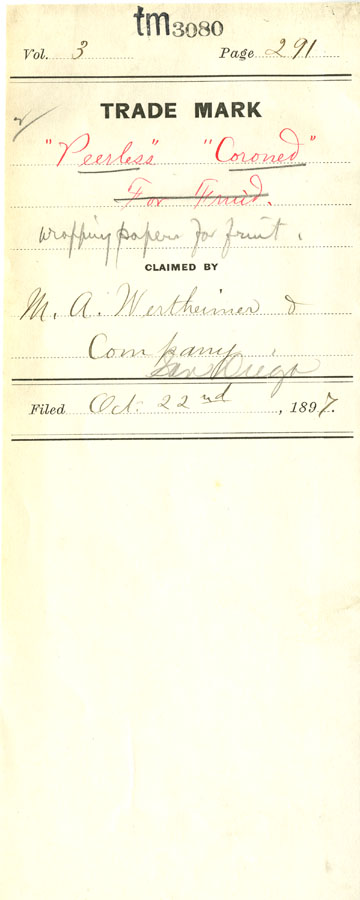 tm3080
Vol. 3 Page 291
TRADE MARK
"Peerless" "Coroned"
For Fruid.
wrapping papers for fruit.
CLAIMED BY
M. A. Wertheimer &
Company.
San Diego
Filed Oct. 22nd, 1897.